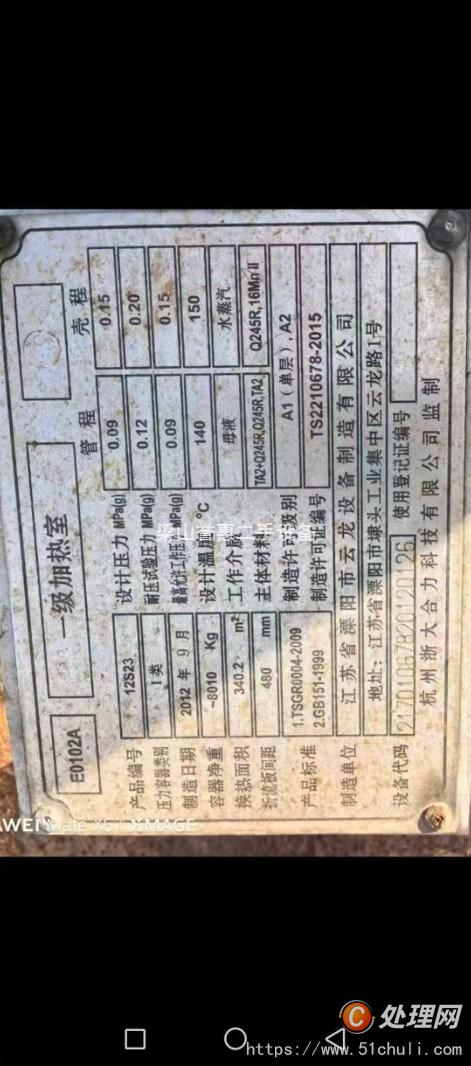 E0102A 一级加热室
管程 壳程
产品编号 12S23 设计压力 MPa(g) 0.09 0.15
压力容器类别 I 类 耐压试验压力 MPa(g) 0.12 0.20
制造日期 2012 年 9 月 最高允许工作压力 MPa(g) 0.09 0.15
容器净重 ~8010 Kg 设计温度 °C 140 150
换热面积 340.2 m² 工作介质 母液 水蒸汽
折流板间距 480 mm 主体材料 TA2+Q245R,Q245R,TA2 Q245R,16MnⅡ
产品标准 1.TSGR0004-2009 制造许可级别 A1(单层),A2
2.GB151-1999 制造许可证编号 TS2210678-2015
制造单位 江苏省溧阳市云龙设备制造有限公司
地址: 江苏省溧阳市埭头工业集中区云龙路1号
设备代码 21701067820120126 使用登记证编号
杭州浙大合力科技有限公司监制
梁山誉惠二手设备
AWEI Mate X6 | XMAGE
C 处理网
https://www.51chuli.com